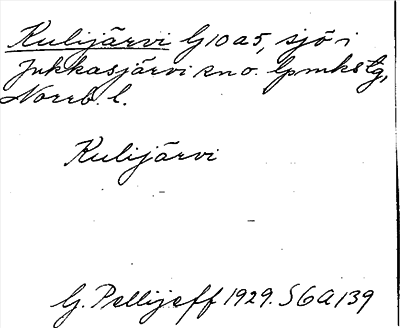 Kulijärvi G10a5, sjö i
Jukkasjärvi sn o. lpmkstg,
Norrb. l.
Kulijärvi
G. Pellijeff 1929. S6A139